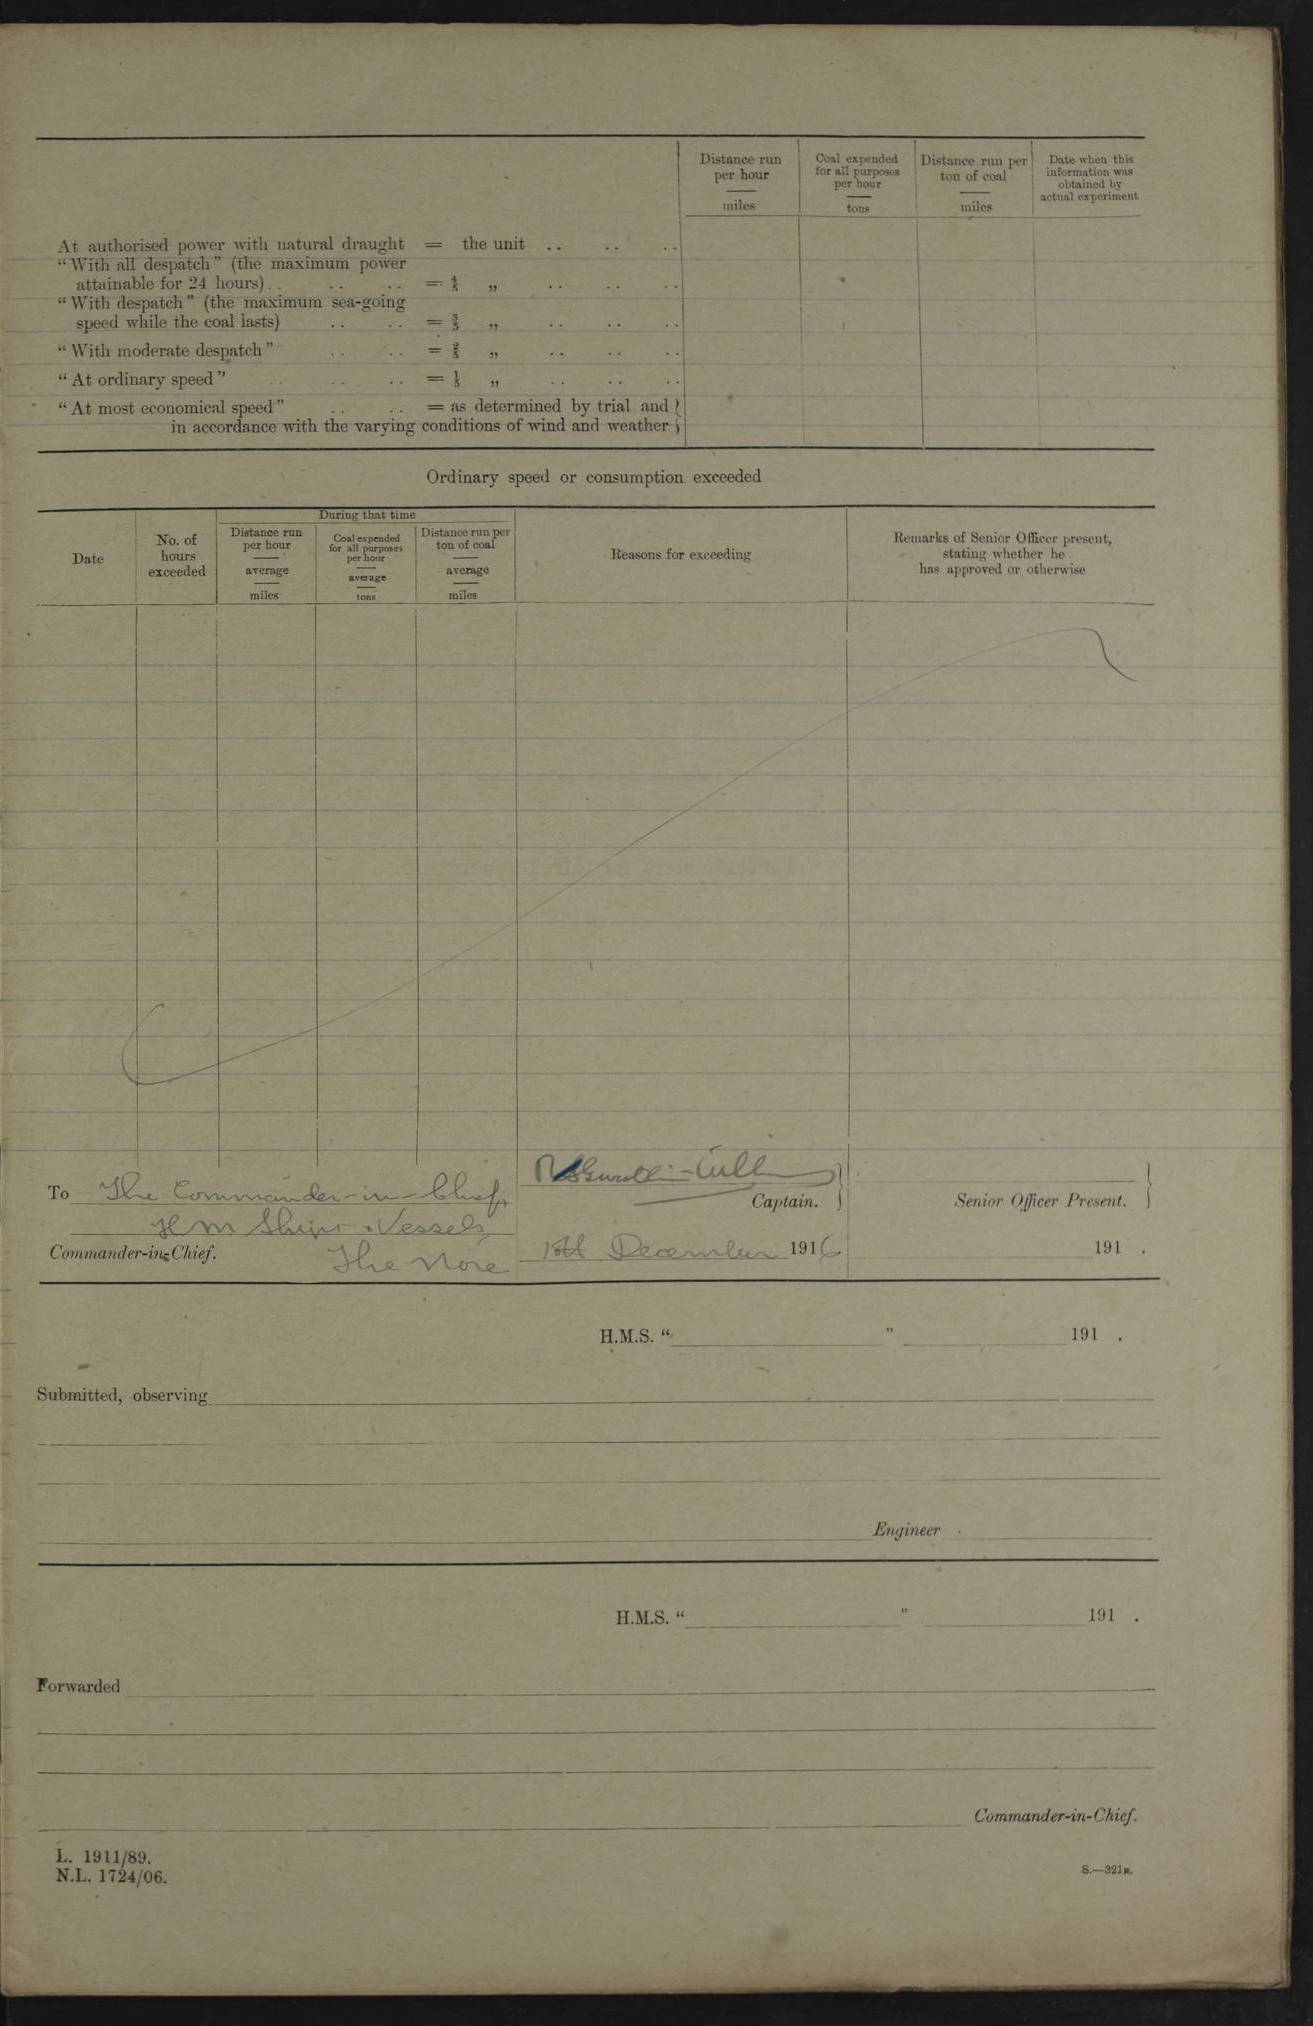 Distance run per hour miles
Coal expended for all purposes per hour tons
Distance run per ton of coal miles
Date when this information was obtained by actual experiment
At authorised power with natural draught = the unit .. .. ..
“With all despatch” (the maximum power
attainable for 24 hours) .. .. .. = 4/5 „ .. .. ..
“With despatch” (the maximum sea-going
speed while the coal lasts) .. .. = 3/5 „ .. .. ..
“With moderate despatch” .. .. = 2/5 „ .. .. ..
“At ordinary speed” .. .. .. = 1/5 „ .. .. ..
“At most economical speed” .. .. = as determined by trial and
in accordance with the varying conditions of wind and weather
Ordinary speed or consumption exceeded
During that time
Date
No. of hours exceeded
Distance run per hour average miles
Coal expended for all purposes per hour average tons
Distance run per ton of coal average miles
Reasons for exceeding
Remarks of Senior Officer present,
stating whether he
has approved or otherwise
To The Commander-in-Chief,
HM Ships & Vessels,
Commander-in-Chief. The Nore
Captain.
December 1916.
Senior Officer Present.
191 .
H.M.S. “ ” 191 .
Submitted, observing
Engineer
H.M.S. “ ” 191 .
Forwarded
Commander-in-Chief.
L. 1911/89.
N.L. 1724/06.
S.—321B.